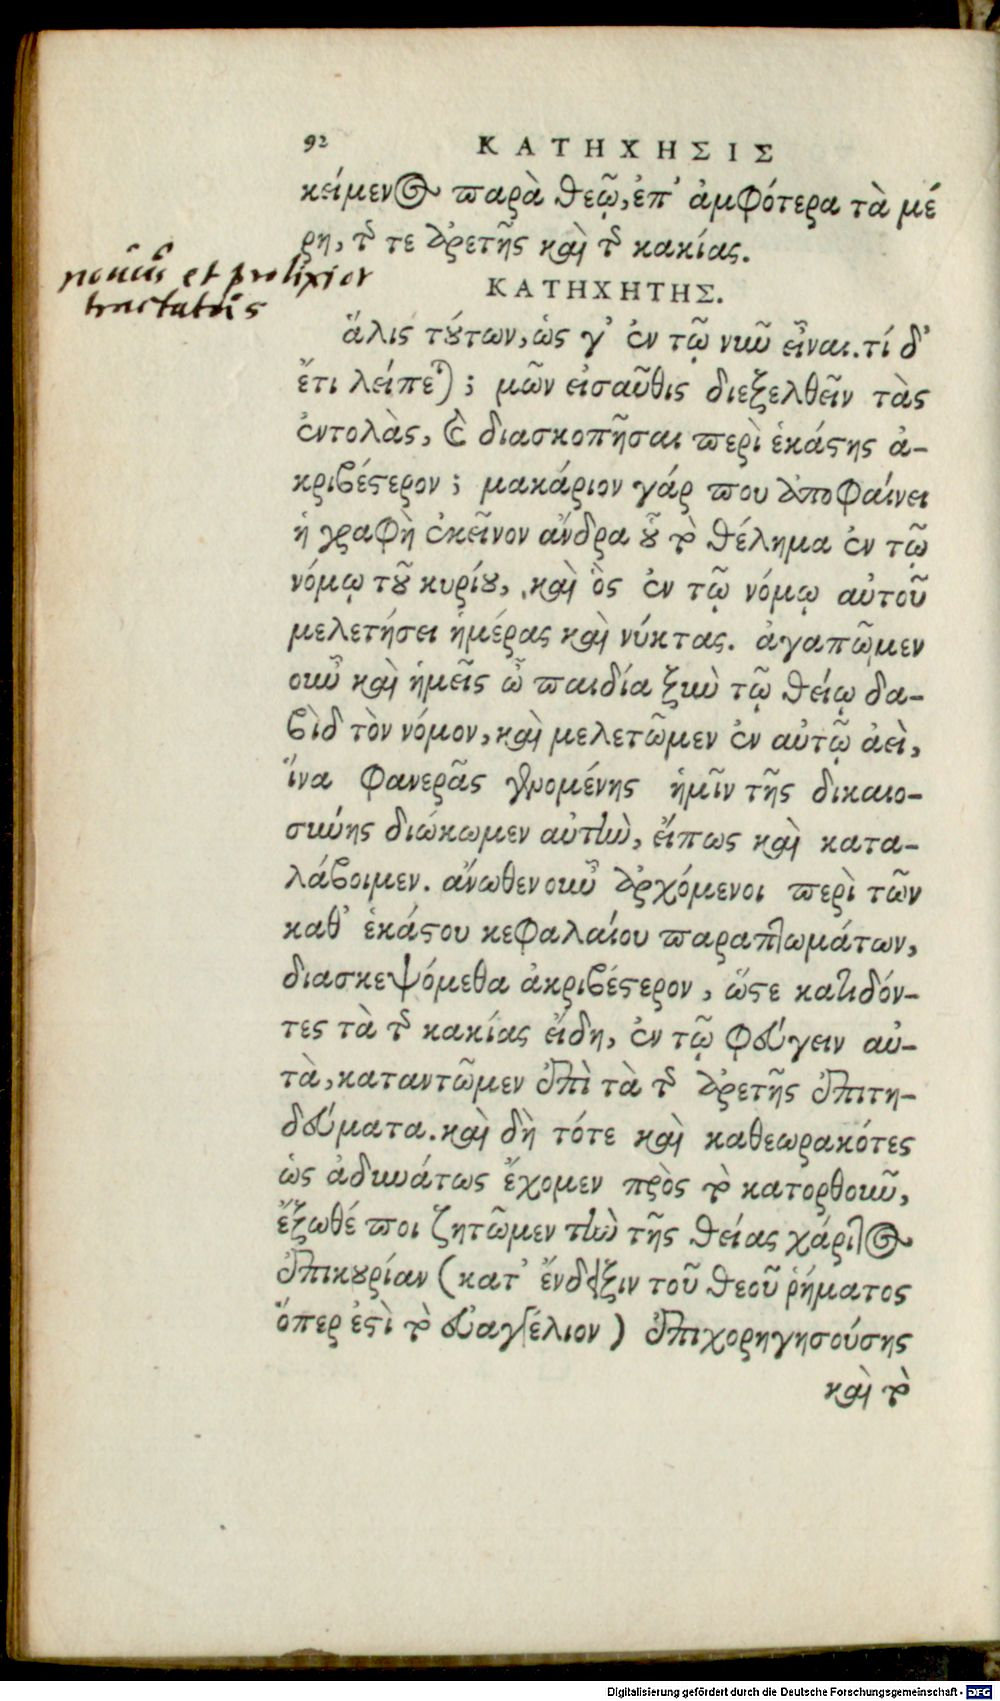 92 ΚΑΤΗΧΗΣΙΣ
κείμενος παρὰ θεῷ, ἐπ' ἀμφότερα τὰ μέ
ρη, τῆς τε ἀρετῆς καὶ τῆς κακίας.
et prolixior
ΚΑΤΗΧΗΤΗΣ.
ἅλις τούτων, ὡς γ' ἐν τῷ νῦν εἶναι. τί δ'
ἔτι λείπεται; μῶν εἰσαῦθις διεξελθεῖν τὰς
ἐντολὰς, καὶ διασκοπῆσαι περὶ ἑκάστης ἀ-
κριβέστερον; μακάριον γάρ που ἀποφαίνει
ἡ γραφὴ ἐκεῖνον ἄνδρα οὗ τὸ θέλημα ἐν τῷ
νόμῳ τοῦ κυρίου, καὶ ὃς ἐν τῷ νόμῳ αὐτοῦ
μελετήσει ἡμέρας καὶ νύκτας. ἀγαπῶμεν
οὖν καὶ ἡμεῖς ὦ παιδία ξὺν τῷ θείῳ δα-
βὶδ τὸν νόμον, καὶ μελετῶμεν ἐν αὐτῷ ἀεὶ,
ἵνα φανερᾶς γενομένης ἡμῖν τῆς δικαιο-
σύνης διώκωμεν αὐτὴν, εἴπως καὶ κατα-
λάβοιμεν. ἄνωθεν οὖν ἀρχόμενοι περὶ τῶν
καθ' ἑκάστου κεφαλαίου παραπτωμάτων,
διασκεψόμεθα ἀκριβέστερον, ὥστε κατιδόν-
τες τὰ τῆς κακίας εἴδη, ἐν τῷ φεύγειν αὐ-
τὰ, καταντῶμεν ἐπὶ τὰ τῆς ἀρετῆς ἐπιτη-
δεύματα. καὶ δὴ τότε καὶ καθεωρακότες
ὡς ἀδυνάτως ἔχομεν πρὸς τὸ κατορθοῦν,
ἔξωθέ ποι ζητῶμεν τὴν τῆς θείας χάριτος
ἐπικουρίαν (κατ' ἔνδειξιν τοῦ θεοῦ ῥήματος
ὅπερ ἐστὶ τὸ εὐαγγέλιον) ἐπιχορηγησούσης
καὶ τὸ
Digitalisierung gefördert durch die Deutsche Forschungsgemeinschaft - DFG